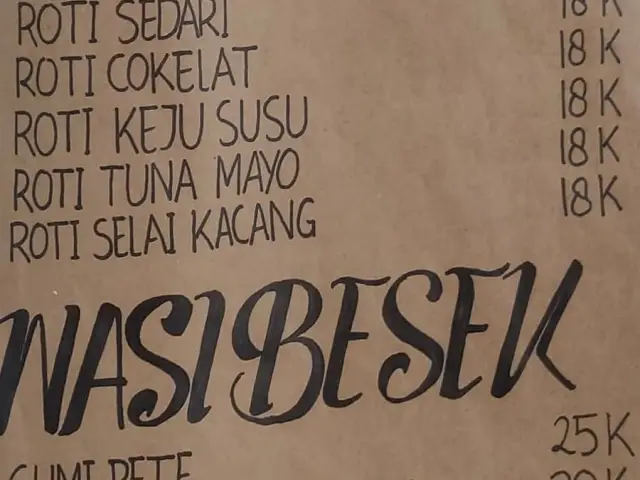 ROTI SEDARI 18K
ROTI COKELAT 18K
ROTI KEJU SUSU 18K
ROTI TUNA MAYO 18K
ROTI SELAI KACANG 18K
NASI BESEK
CUMI PETE 25K